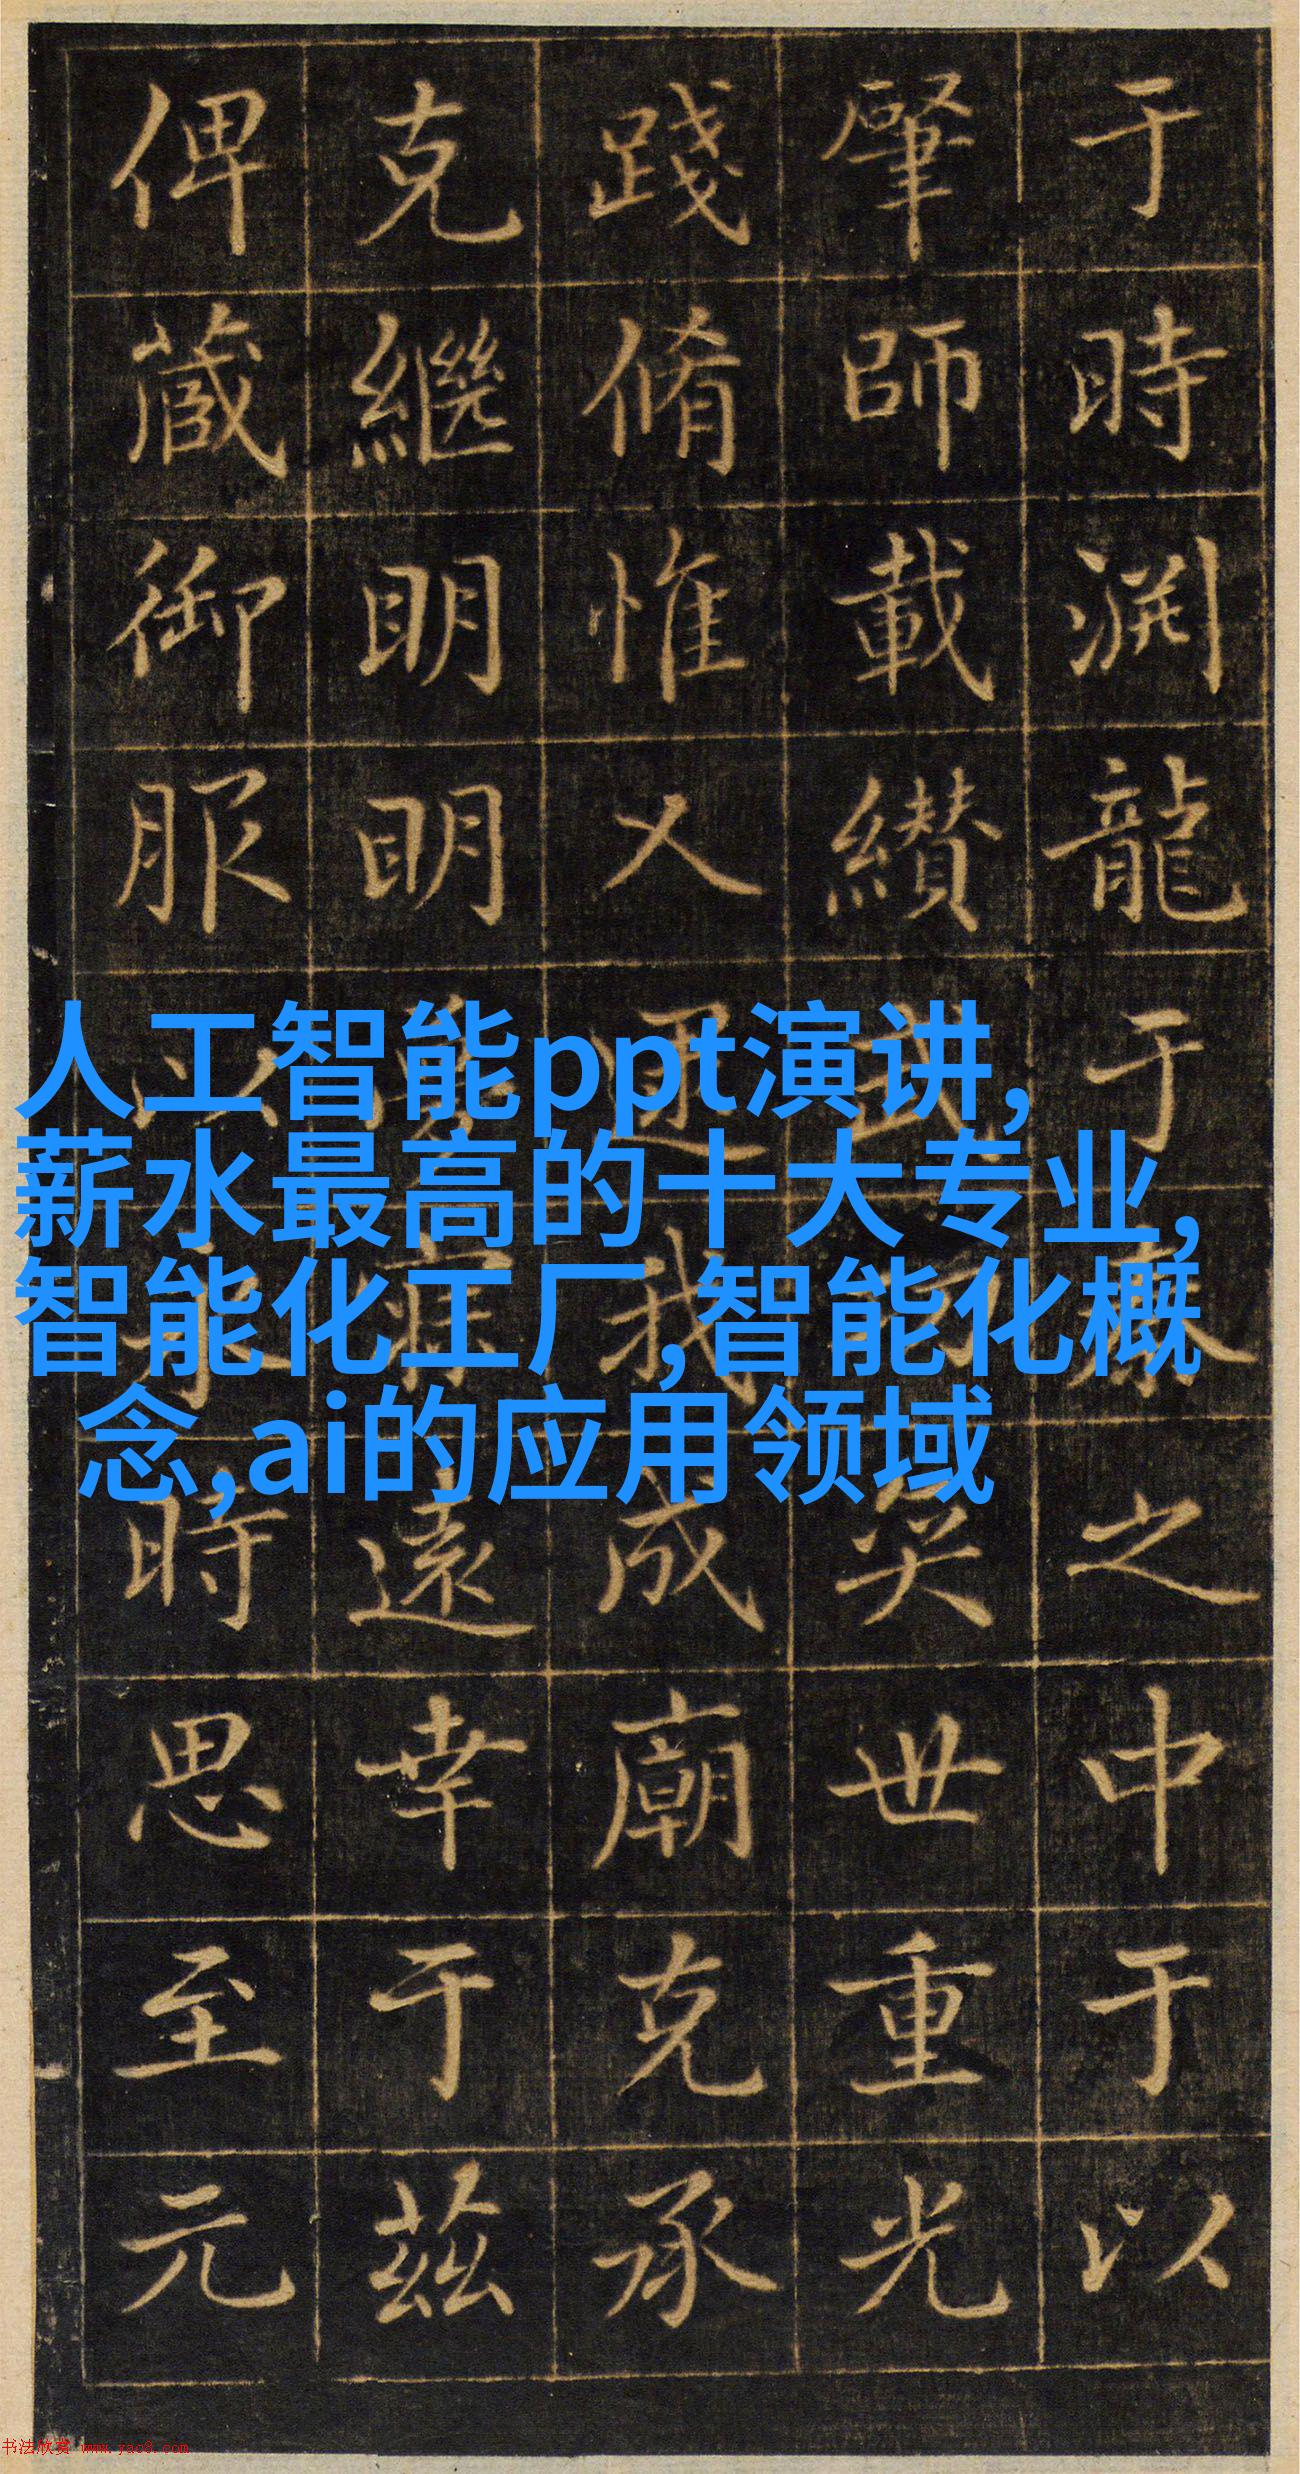 于時渊龍于之中于以
肇師載纘武奕世重光
踐脩惟乂迺我成廟克承
克繼明明遠幸于茲
俾蔵御服以時思至元
人工智能ppt演讲,
薪水最高的十大专业,
智能化工厂,智能化概
念,ai的应用领域
书法欣赏 www.yac8.com